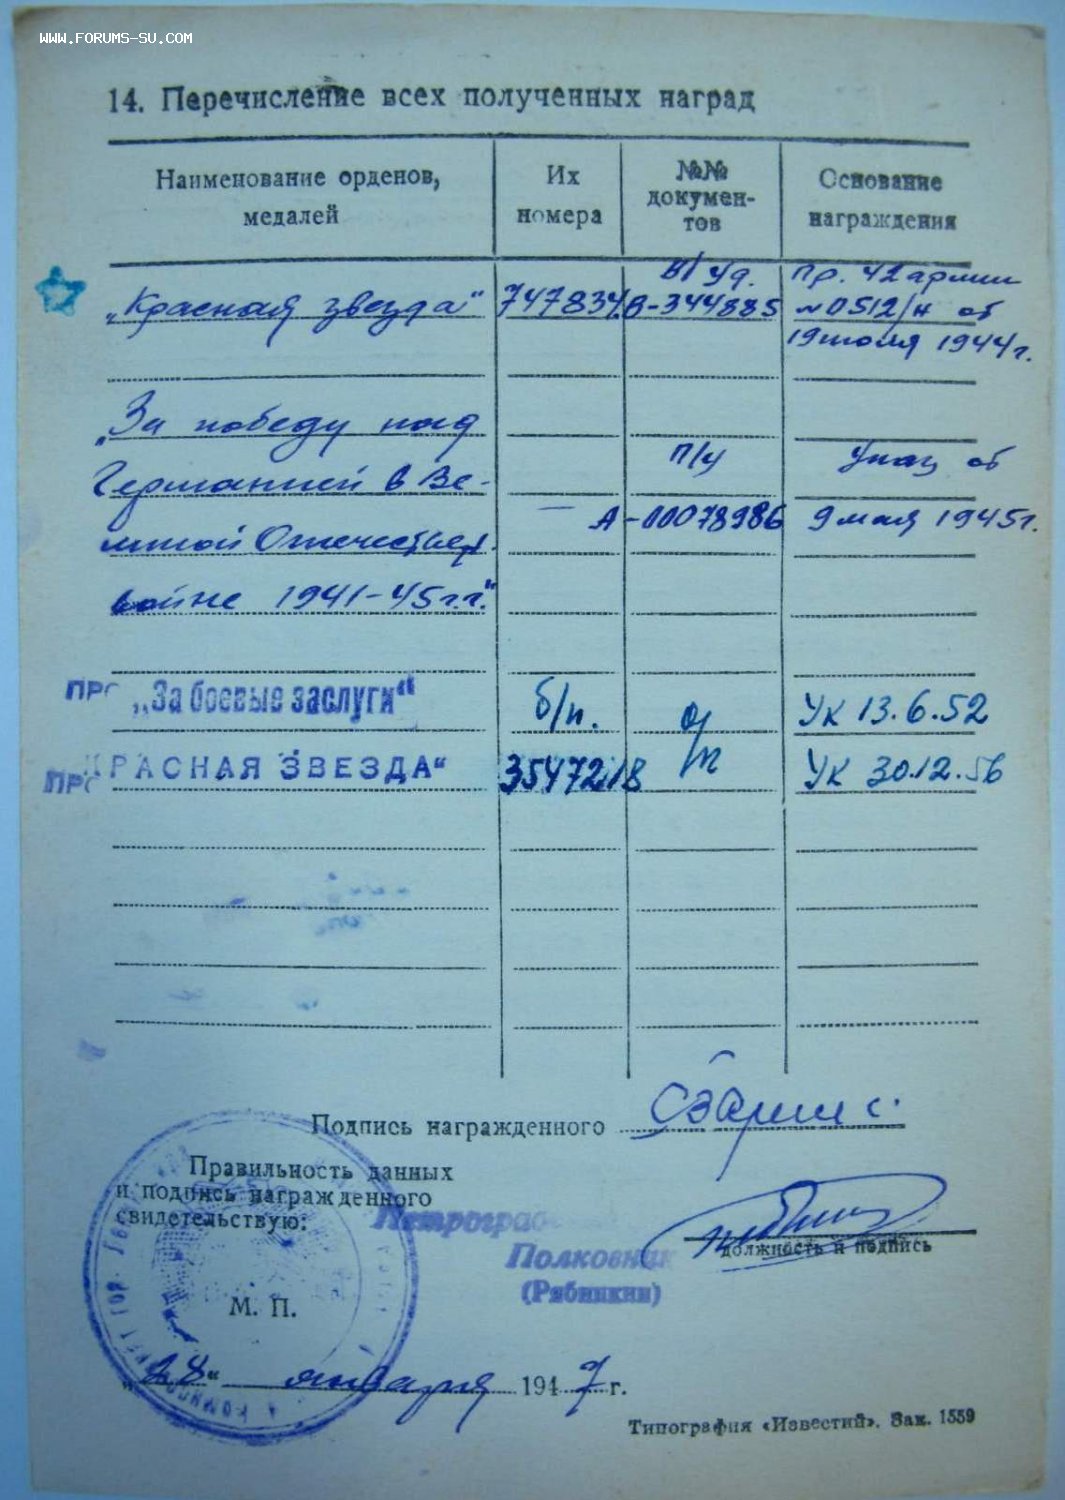 WWW.FORUMS-SU.COM
14. Перечисление всех полученных наград
Наименование орденов, медалей
Их номера
№№ документов
Основание награждения
„Красная звезда" 747834 В/уд. В-344885 Пр. 42 армии №0512/н от 19 июля 1944 г.
„За победу над
Германией в Ве-
ликой Отечествен.
войне 1941-45 г.г."
— п/у А-00078986 Указ от 9 мая 1945 г.
„За боевые заслуги" б/н. Ук 13.6.52
КРАСНАЯ ЗВЕЗДА" 3547218 Ук 30.12.56
Подпись награжденного
Правильность данных
и подпись награжденного
свидетельствую:
Полковник
(Рябинкин)
должность и подпись
М. П.
„28" января 1947 г.
Типография «Известий». Зак. 1559